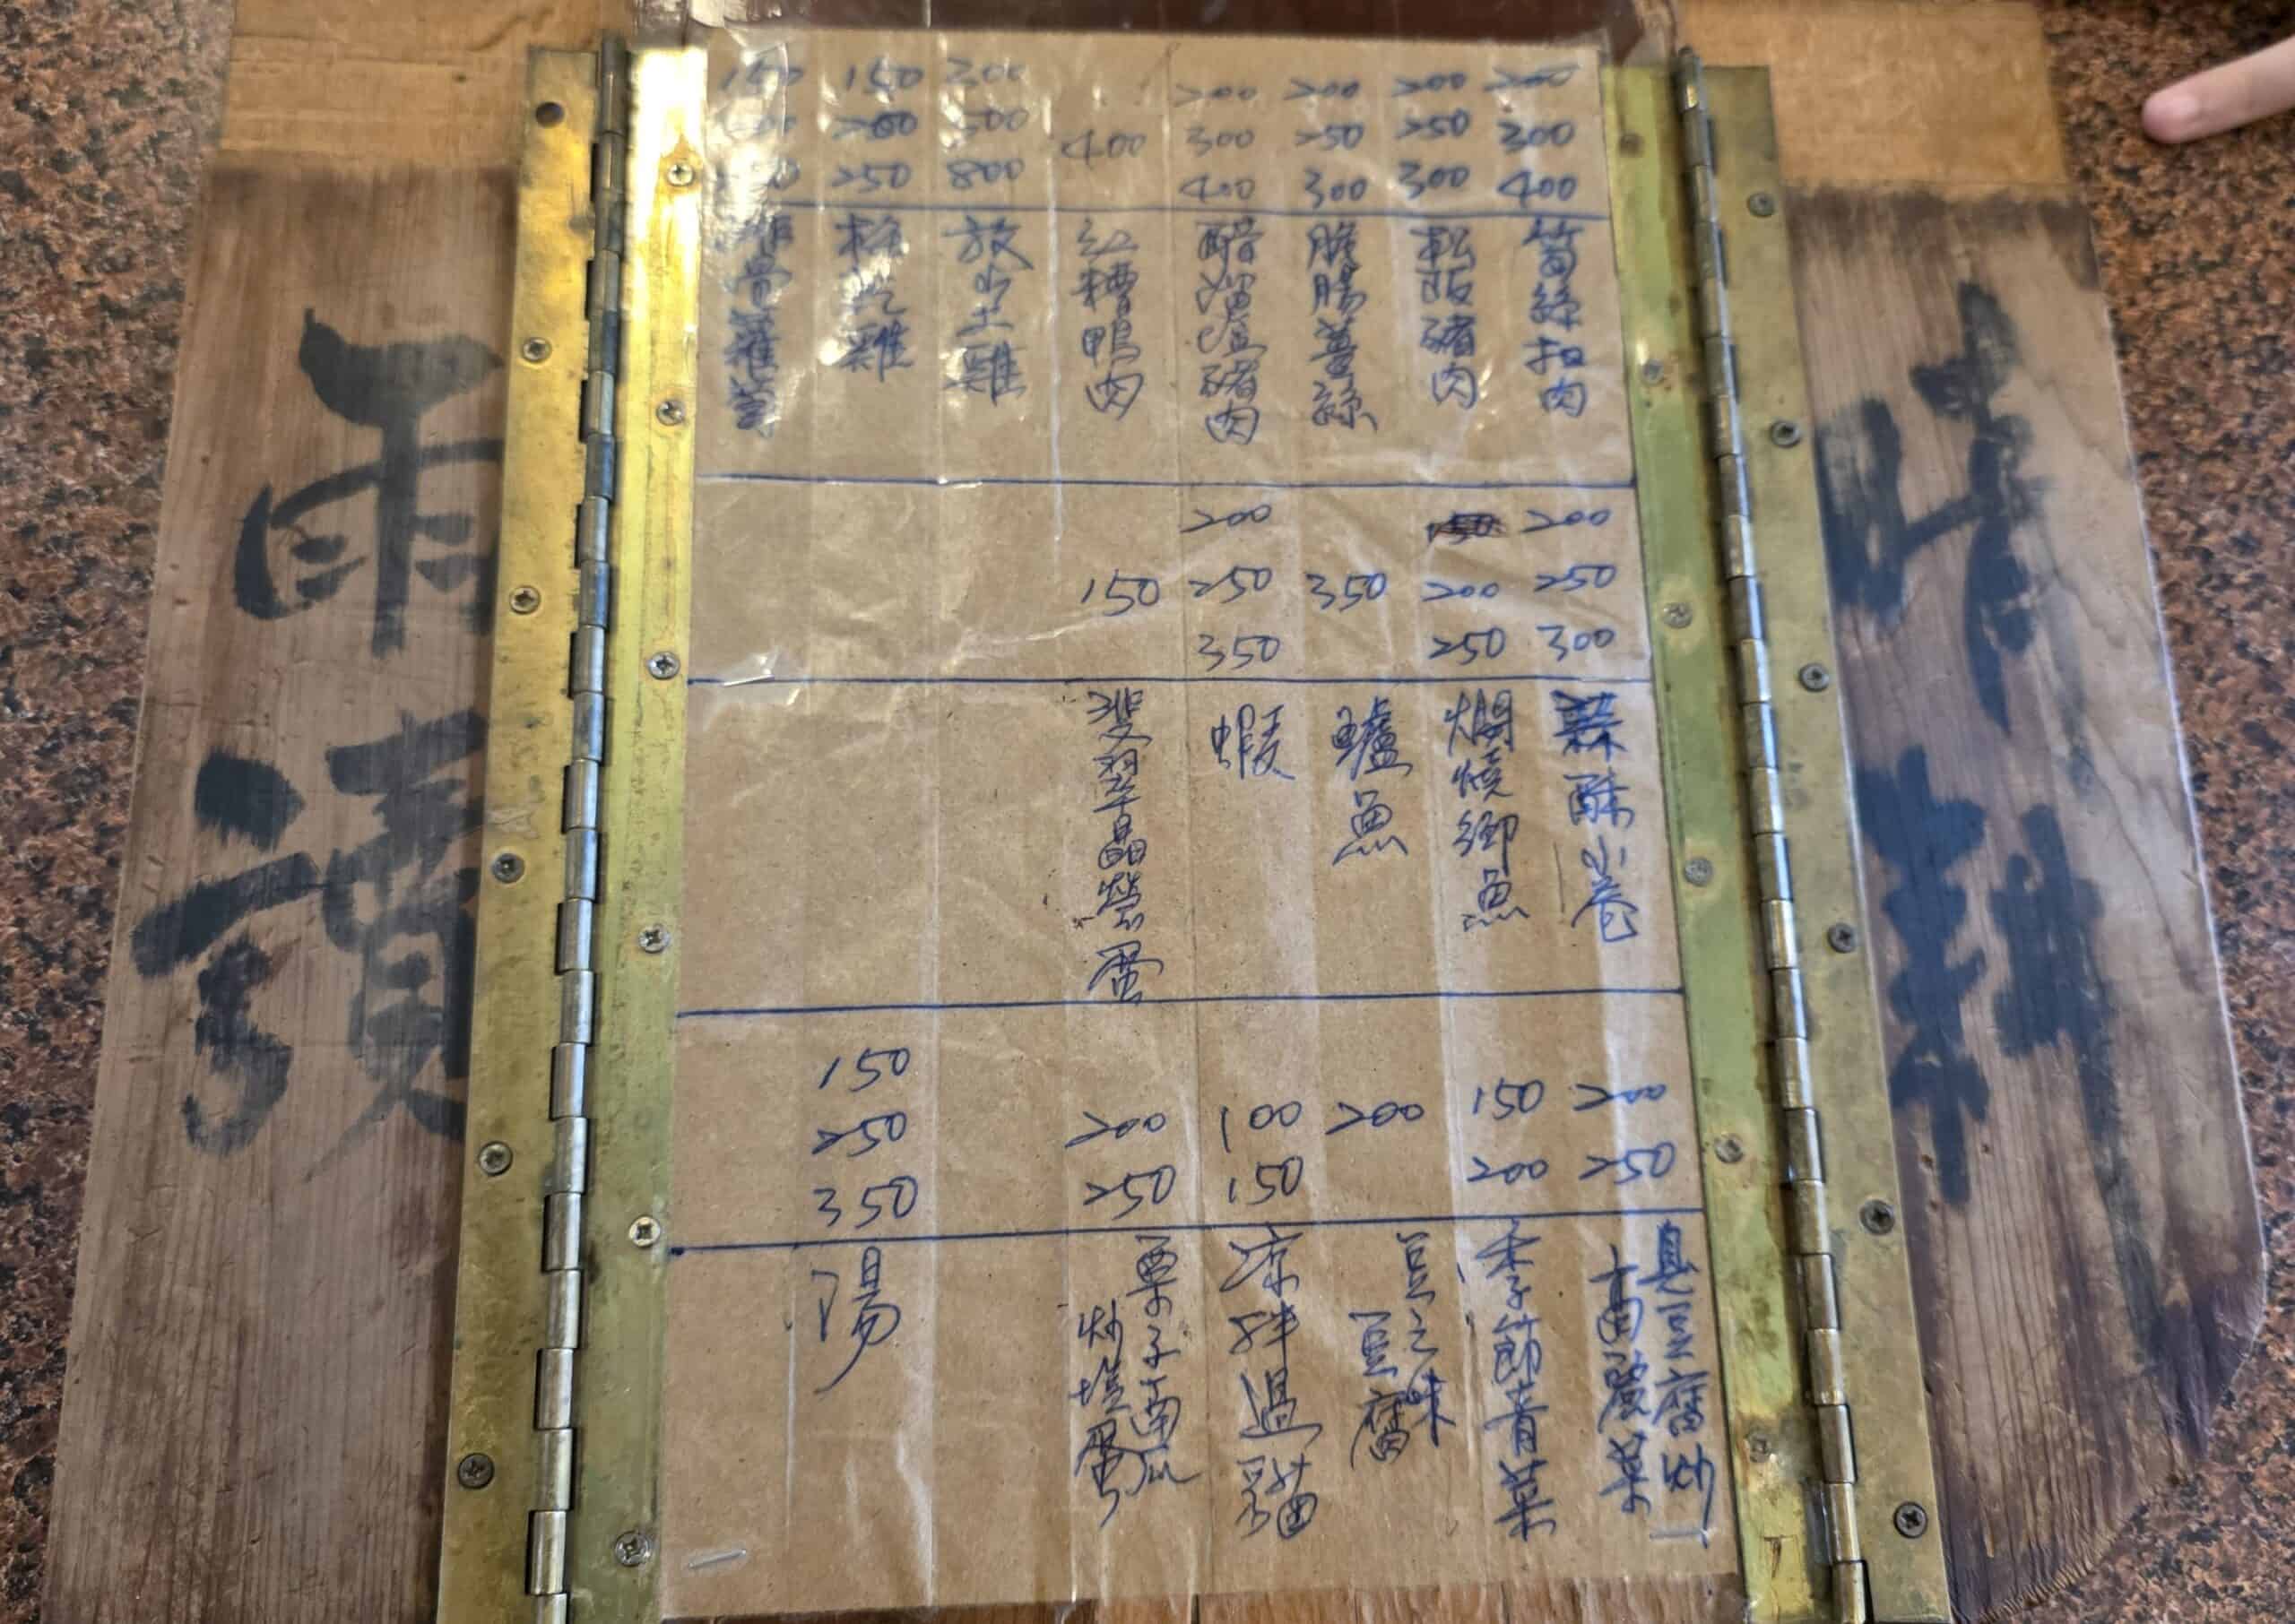 晴耕
雨讀
200
300
400
筍絲扣肉
200
250
300
松阪豬肉
200
250
300
脆腸薑絲
200
300
400
醋溜溫豬肉
400
紅糟鴨肉
300
500
800
放山土雞
150
200
250
雞
150
排骨
200
250
300
蒜酥小卷
200
250
焗燒鄉魚
350
鱸魚
200
250
350
蝦
150
翡翠晶瑩蛋
200
250
臭豆腐炒
高麗菜
150
200
季節青菜
200
豆之味
豆腐
100
150
涼拌過貓
200
250
栗子南瓜
炒塩蛋
150
250
350
湯